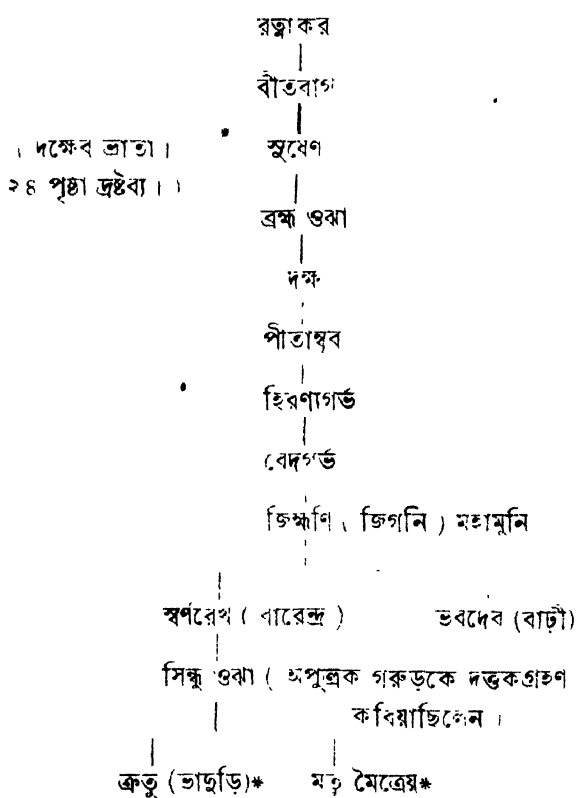 রত্নাকর
বীতবাগ
( দক্ষেব ভ্রাতা ।
সুষেণ
২৪ পৃষ্ঠা দ্রষ্টব্য । )
ব্রহ্ম ওঝা
দক্ষ
পীতাম্বব
হিরণ্যগর্ভ
বেদগর্ভ
জিহ্মণি ( জিগনি ) মহামুনি
স্বর্ণরেখ ( বারেন্দ্র ) ভবদেব (বাঢ়ী)
সিন্ধু ওঝা ( অপুত্রক গরুড়কে দত্তকগ্রহণ
কবিয়াছিলেন ।
ক্রতু (ভাদুড়ি)* মতু মৈত্রেয়*